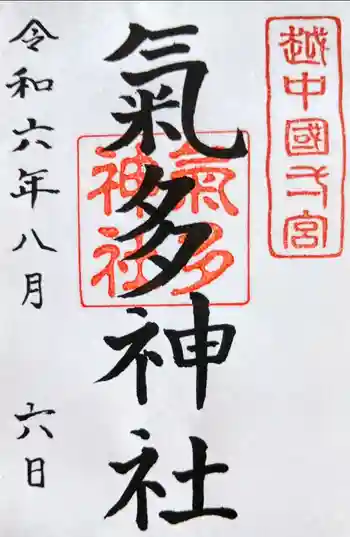 越中國一宮
氣多神社
氣多
神社
令和六年八月 六日